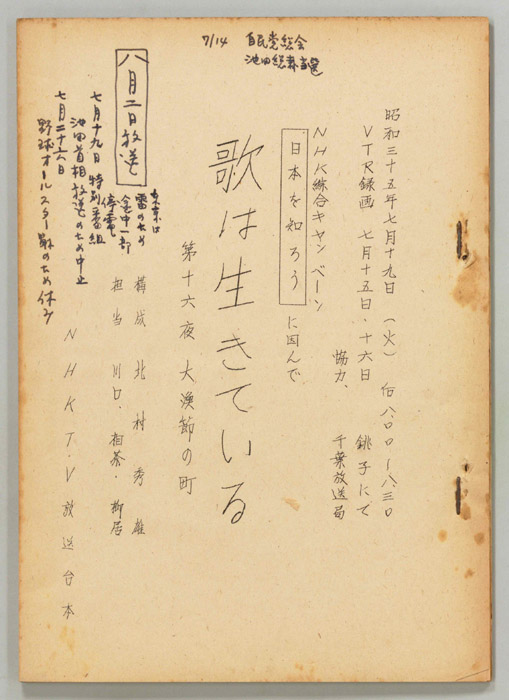 7/14 自民党総会
池田総裁当選
昭和三十五年七月十九日(火)后八〇〇ー八三〇
VTR録画 七月十五日・十六日 銚子にて
協力、千葉放送局
NHK綜合キャンペーン
日本を知ろう に因んで
歌は生きている
第十六夜 大漁節の町
構成 北村秀雄
担当 川口、相茶・柳居
NHKT・V放送台本
八月二日放送
東京は
雷のため
全中一部
停電
七月十九日 特別番組
池田首相放送のため中止
七月二十六日
野球オールスター戦のため休み